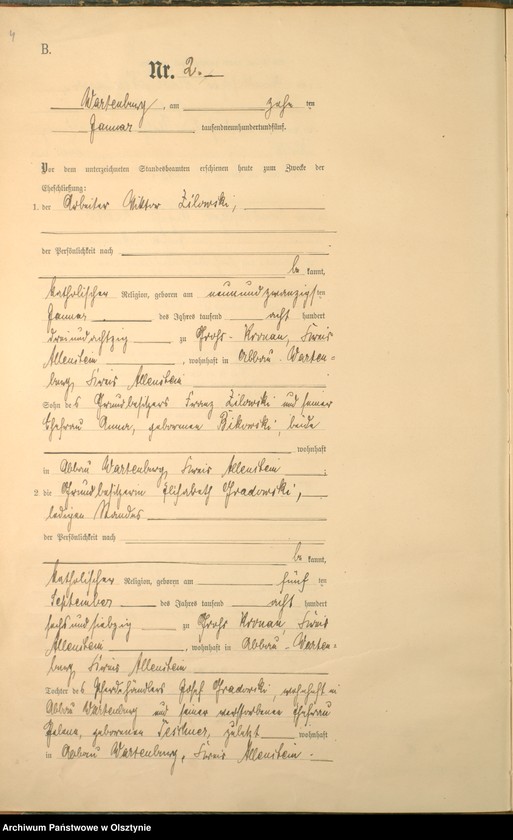 4
B.
Nr. 2.
Wartenburg, am zehn ten
Januar tausendneunhundertundfünf.
Vor dem unterzeichneten Standesbeamten erschienen heute zum Zwecke der
Eheschließung:
1. der Arbeiter Viktor Zilowski,
der Persönlichkeit nach
be kannt,
katholischer Religion, geboren am neunundzwanzigsten
Januar des Jahres tausend acht hundert
dreiundachtzig zu Groß-Kronau, Kreis
Allenstein, wohnhaft in Abbau-Warten=
burg, Kreis Allenstein
Sohn des Grundbesitzers Franz Zilowski und seiner
Ehefrau Anna, geborenen Bikowski, beide
wohnhaft
in Abbau Wartenburg, Kreis Allenstein;
2. die Grundbesitzerin Elisabeth Gradowski,
ledigen Standes
der Persönlichkeit nach
be kannt,
katholischer Religion, geboren am fünf ten
September des Jahres tausend acht hundert
sechsundsiebzig zu Groß Kronau, Kreis
Allenstein, wohnhaft in Abbau-Warten=
burg, Kreis Allenstein
Tochter des Pferdehändlers Josef Gradowski, wohnhaft in
Abbau Wartenburg und seiner verstorbenen Ehefrau
Helene, geborenen Teschner, zuletzt wohnhaft
in Abbau Wartenburg, Kreis Allenstein.
Archiwum Państwowe w Olsztynie